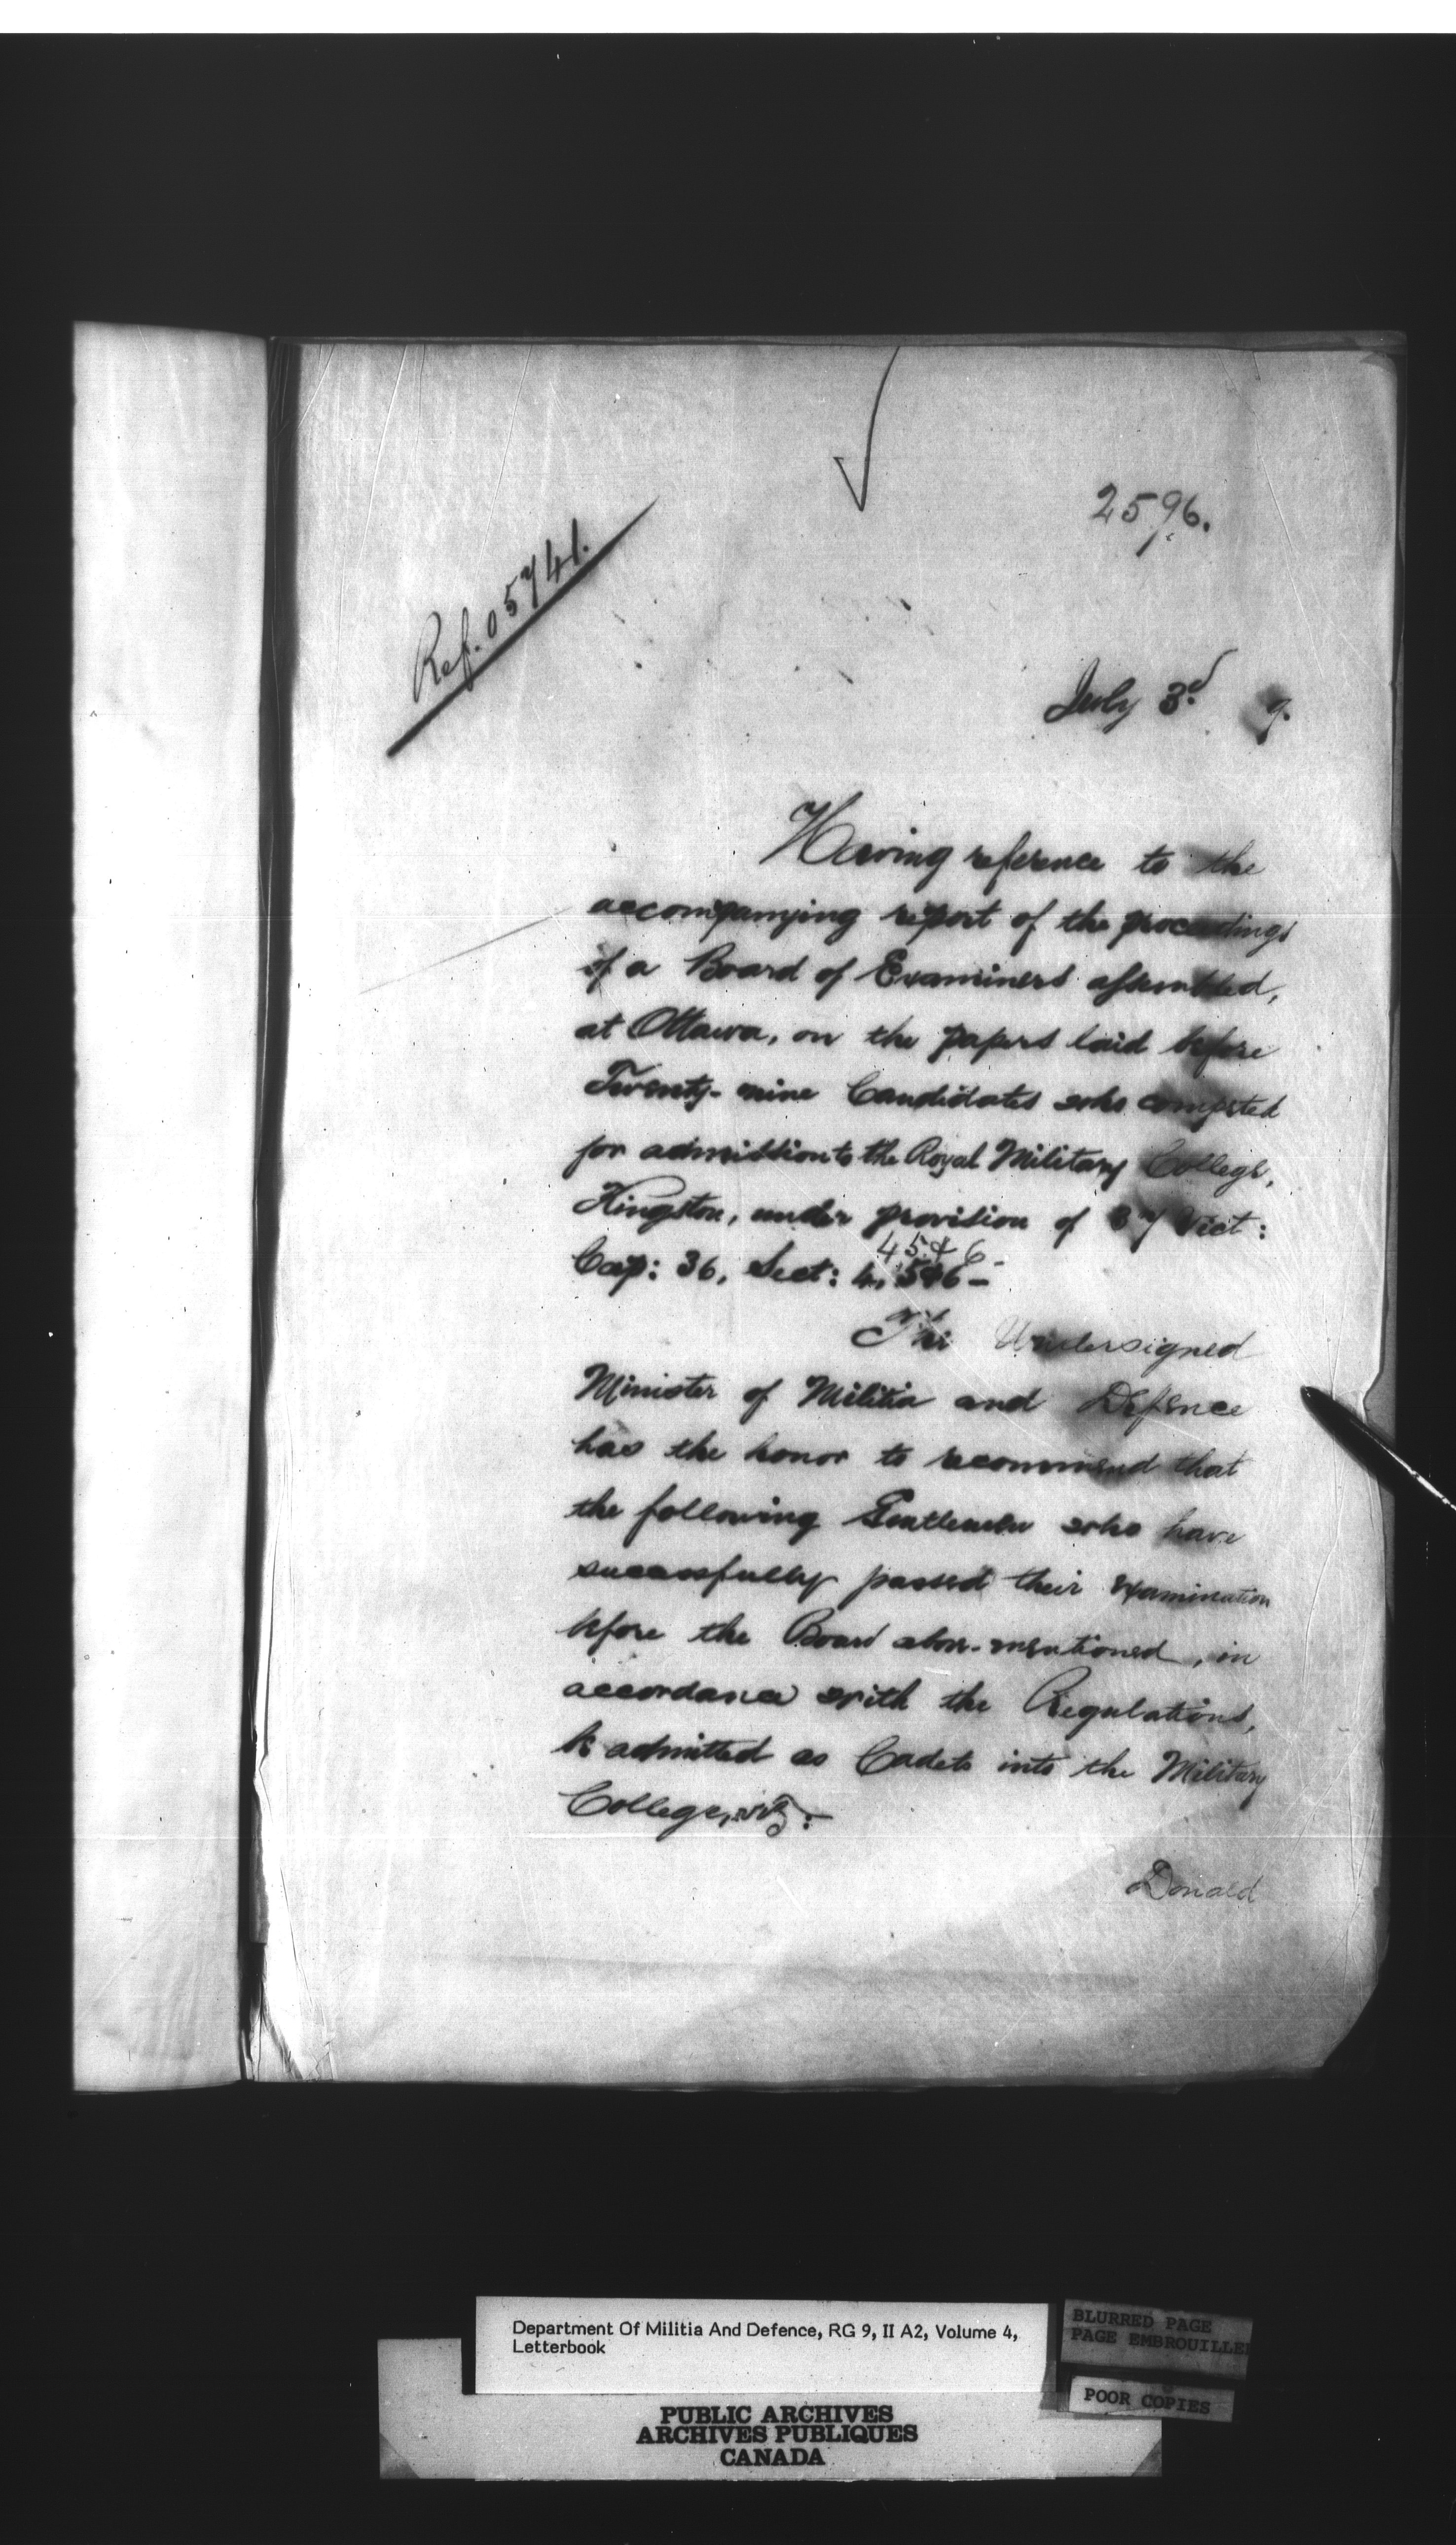 2596.
Ref. 05741.
July 3d 9.
Having reference to the
accompanying report of the proceedings
of a Board of Examiners assembled,
at Ottawa, on the papers laid before
Twenty-nine Candidates who competed
for admission to the Royal Military College,
Kingston, under provision of 37 Vict:
4, 5 & 6
Cap: 36, Sect: 4, 5 & 6 —
The Undersigned
Minister of Militia and Defence
has the honor to recommend that
the following Gentlemen who have
successfully passed their examination
before the Board above-mentioned, in
accordance with the Regulations,
be admitted as Cadets into the Military
College, viz: —
Donald
Department Of Militia And Defence, RG 9, II A2, Volume 4,
Letterbook
BLURRED PAGE
PAGE EMBROUILLEE
POOR COPIES
PUBLIC ARCHIVES
ARCHIVES PUBLIQUES
CANADA